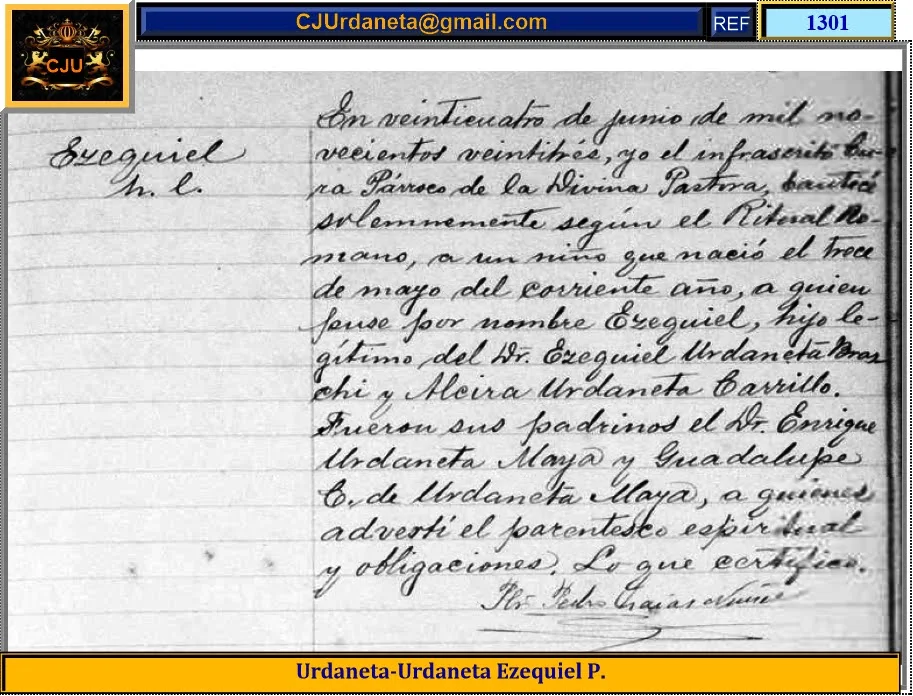 CJUrdaneta@gmail.com
REF
1301
CJU
Ezequiel
h. l.
En veinticuatro de junio de mil no-
vecientos veintitrés, yo el infrascrito Cu-
ra Párroco de la Divina Pastora, bauticé
solemnemente según el Ritual Ro-
mano, a un niño que nació el trece
de mayo del corriente año, a quien
puse por nombre Ezequiel, hijo le-
gítimo del Dr. Ezequiel Urdaneta Bras
chi y Alcira Urdaneta Carrillo.
Fueron sus padrinos el Dr. Enrique
Urdaneta Maya y Guadalupe
C. de Urdaneta Maya, a quienes
advertí el parentesco espiritual
y obligaciones. Lo que certifico.
Pbro. Pedro
Urdaneta-Urdaneta Ezequiel P.